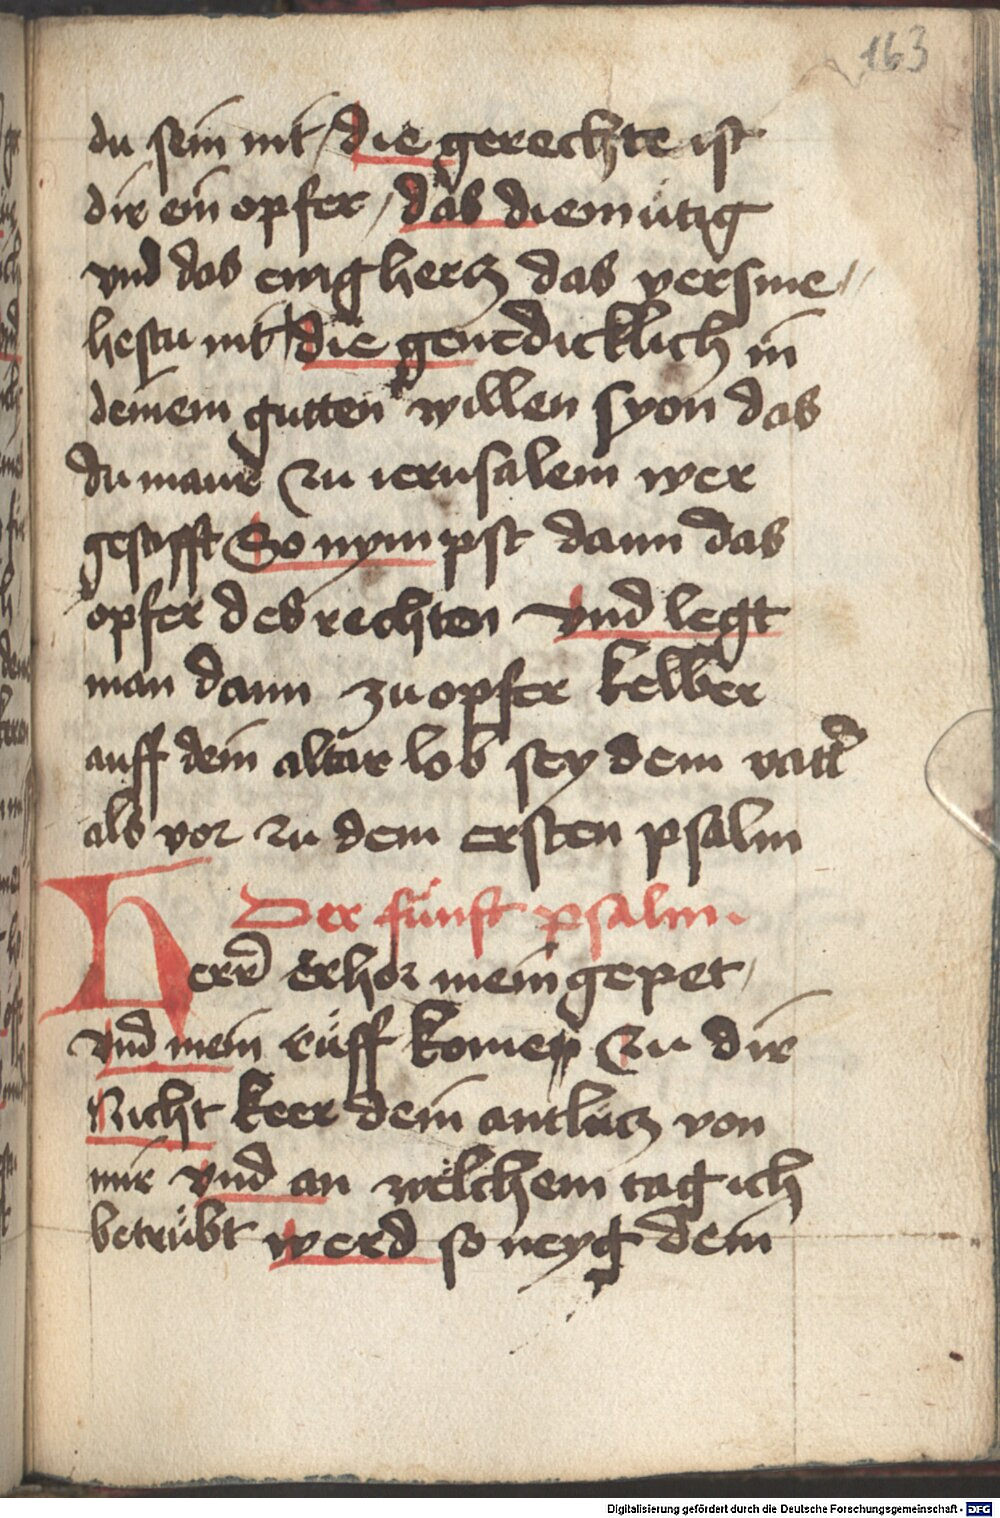 163
du sein nit / die gerechte ist
dir ein opfer / das diemütig
vnd das ewig hercz das versme//
hestu nit die genedicklich in
deinem gutten willen syon das
du maur zu ierusalem wer
gestifft So nympst dann das
opfer des rechten vnd legt
man dann zu opfer kelber
auff dein altar lob sey dem vatt̄
als vor zu dem ersten psalm
Der fünft psalm
Herr̄ erhor mein gepet /
vnd mein rüff komen zu dir
Nicht keer dein antlücz von
mir vnd an welchem tag ich
betrübt werd so neyg dein
Digitalisierung gefördert durch die Deutsche Forschungsgemeinschaft - DFG